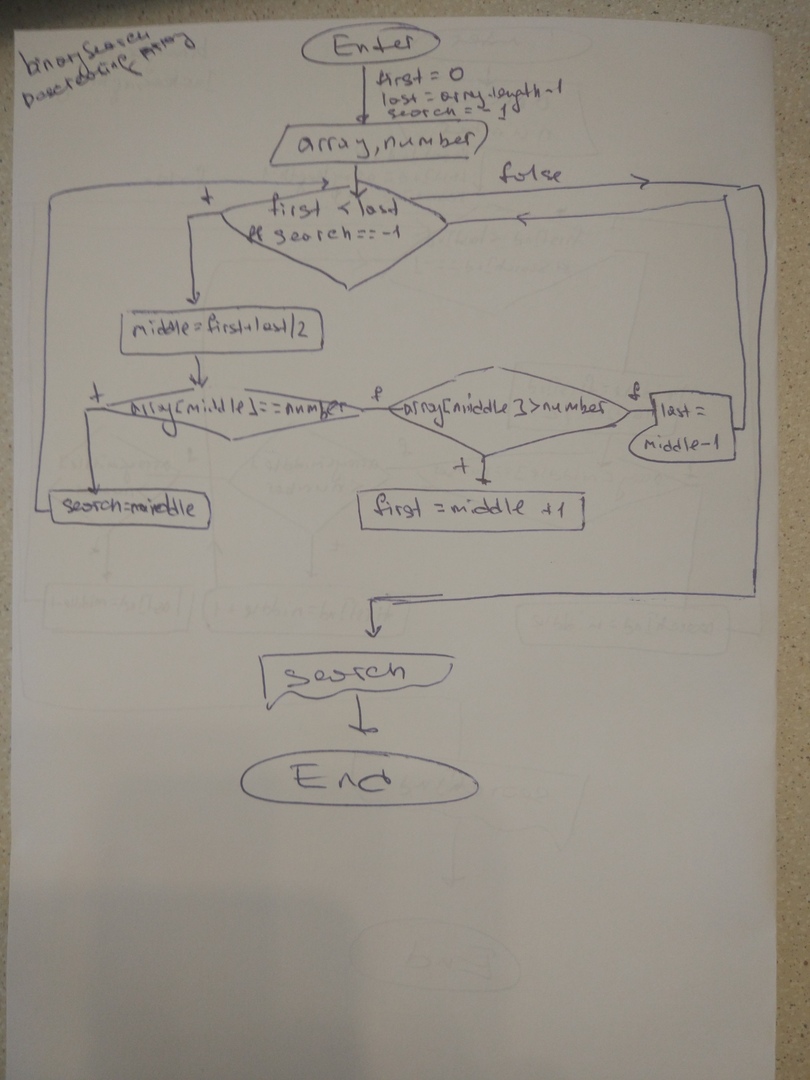 binary search
Decreasing array
Enter
first = 0
last = array.length-1
search = -1
array, number
false
t
first < last
&& search == -1
middle = first+last/2
t
array[middle] == number
f
array[middle] > number
f
last =
middle-1
t
search = middle
first = middle +1
search
End